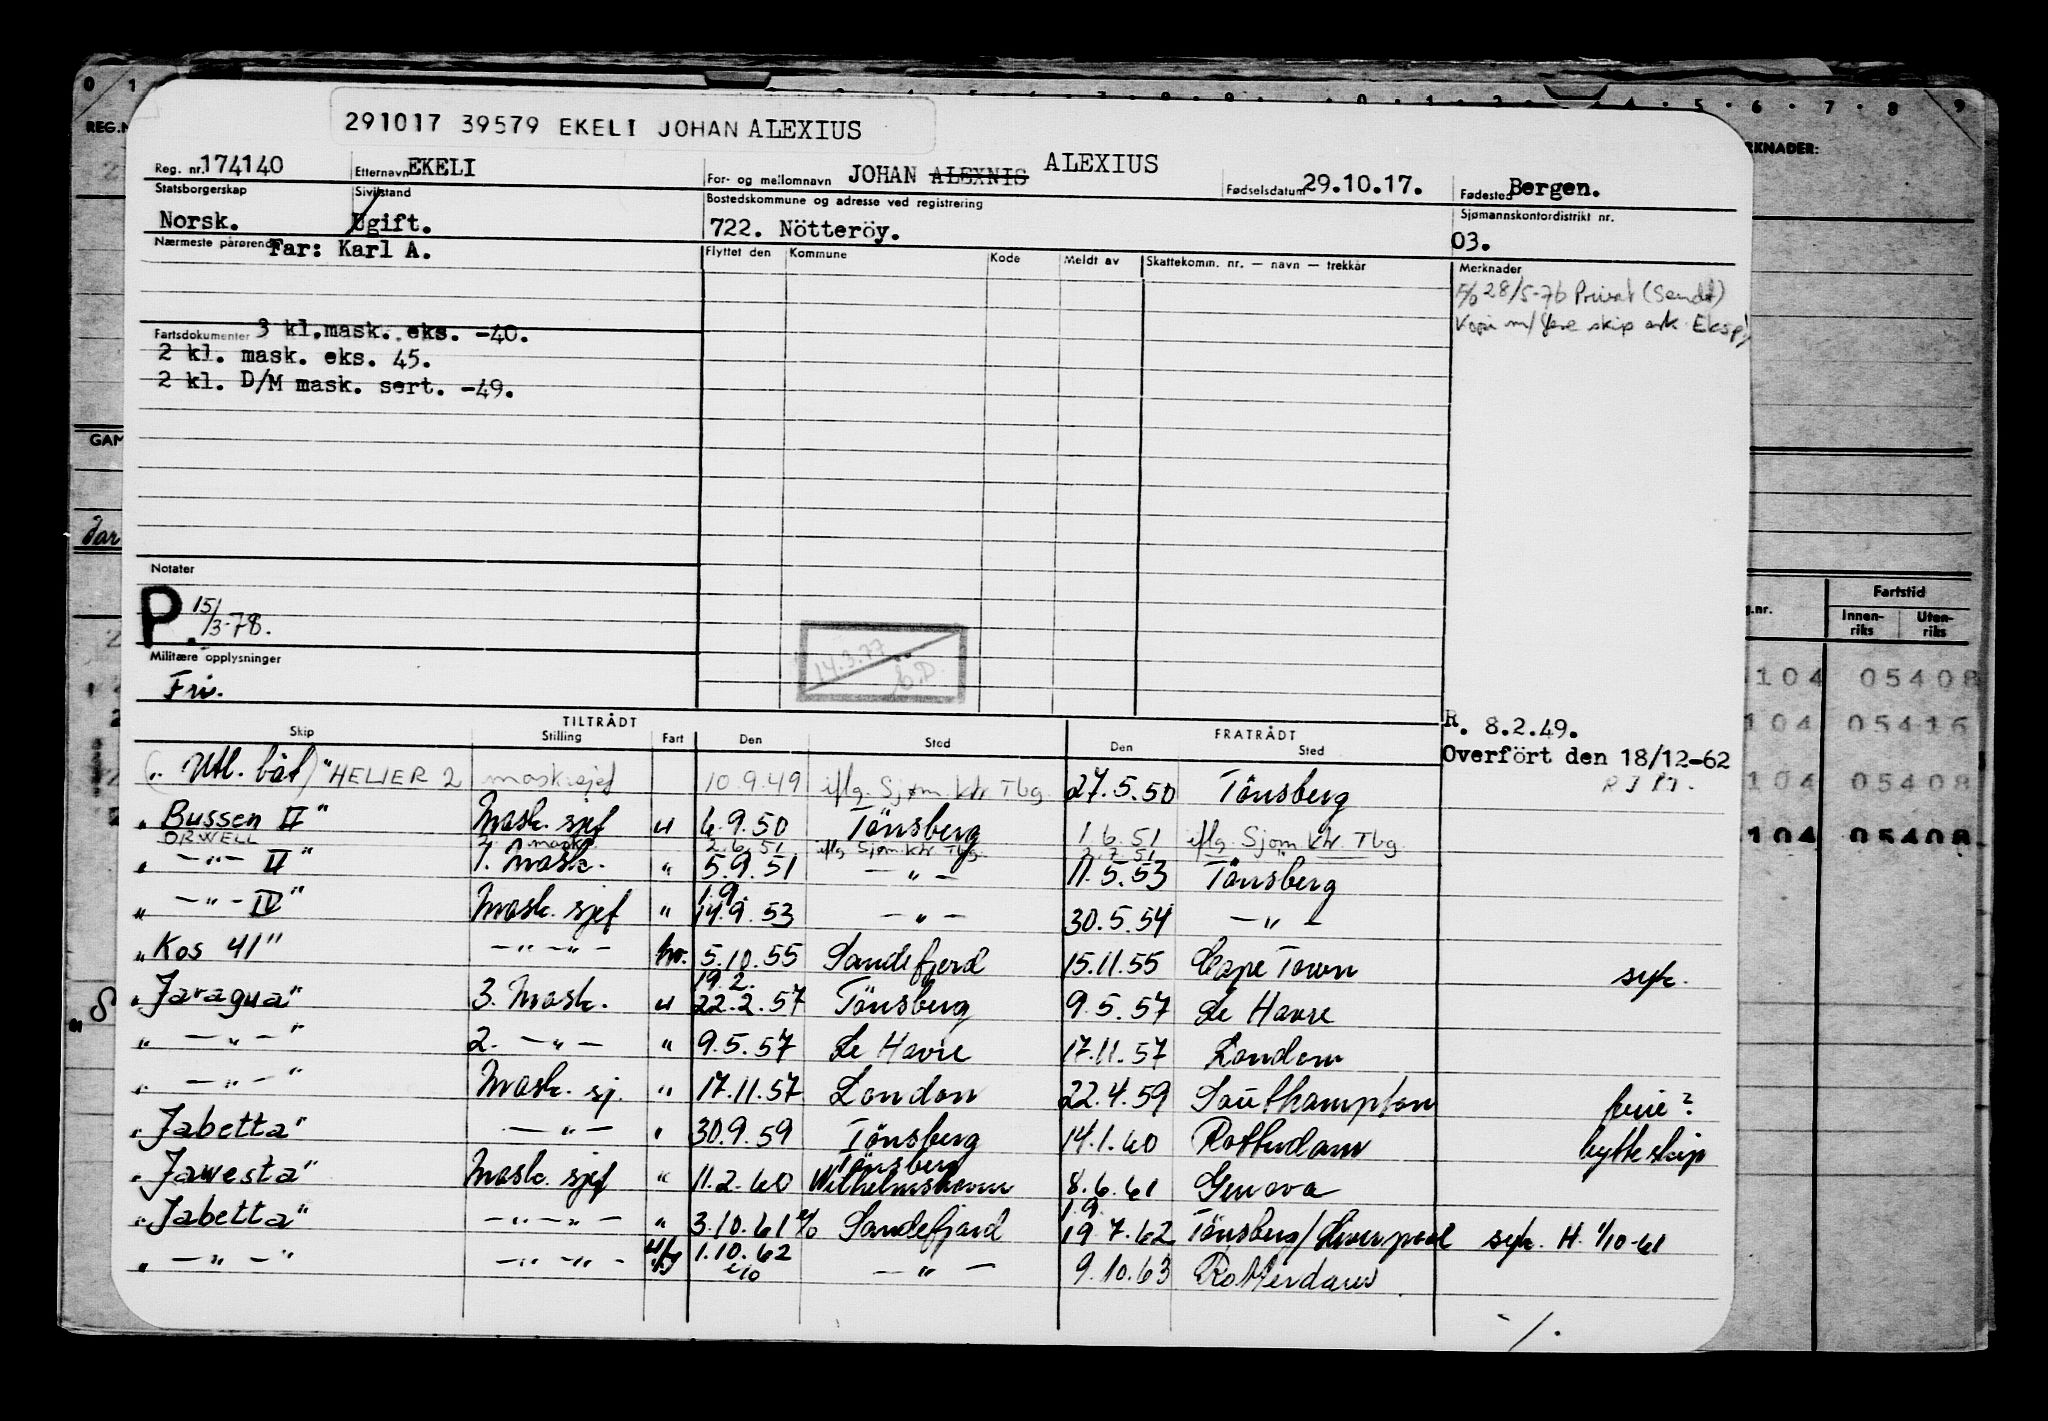 291017 39579 EKELI JOHAN ALEXIUS
Reg. nr. 174140 Etternavn EKELI For- og mellomnavn JOHAN ALEXNIS ALEXIUS Fødselsdatum 29.10.17. Fødested Bergen.
Statsborgerskap Norsk. Sivilstand Ugift. Bostedskommune og adresse ved registrering 722. Nötteröy. Sjømannskontordistrikt nr. 03.
Nærmeste pårørende Far: Karl A.
Flyttet den Kommune Kode Meldt av Skattekomm. nr. — navn — trekkår Merknader
28/5-76 Privat (Sendt)
Kopi m/ skip ark. Eksp.
Fartsdokumenter 3 kl.mask. eks. -40.
2 kl. mask. eks. 45.
2 kl. D/M mask. sert. -49.
Notater
P. 15/3-78.
14.3.77
Militære opplysninger
Fri.
TILTRÅDT FRATRÅDT
Skip Stilling Fart Den Sted Den Sted
R. 8.2.49.
Overfört den 18/12-62
(" Utl. båt) "HELIER 2 maskinsjef 10.9.49 iflg. Sjøm. ktr Tbg 27.5.50 Tönsberg
" Bussen II" Mask. sjef " 6.9.50 Tönsberg 1.6.51 iflg. Sjøm ktr. Tbg.
ORWELL mask. 2.6.51 iflg Sjøm. ktr. Tbg. 2.7.51
" —"— II" 1. Mask. " 5.9.51 —"— 11.5.53 Tönsberg
" —"— IV" Mask. sjef " 1.9. 14.9.53 —"— 30.5.54 —"—
" Kos 41" —"—"— hv. 5.10.55 Sandefjord 15.11.55 Cape Town syk.
" Jaragua" 3. Mask. " 19.2. 22.2.57 Tönsberg 9.5.57 Le Havre
" —"—" 2. —"— " 9.5.57 Le Havre 17.11.57 London
" —"—" Mask. sj. " 17.11.57 London 22.4.59 Southampton ferie?
" Jabetta" —"— " 30.9.59 Tönsberg 14.1.60 Rotterdam bytte skip
" Jawesta" Mask. sjef " 11.2.60 Tönsberg Wilhelmshaven 8.6.61 Genova
" Jabetta" —"—"— " 3.10.61 e/o Sandefjord 1.9. 19.7.62 Tönsberg/Liverpool syk. H. 1/10-61
" —"—" —"—"— 1.10.62 e/o —"— 9.10.63 Rotterdam
-/.
REG.N
GAM
RKNADER:
g.nr. Fartstid
Innen-riks Uten-riks
104 05408
104 05416
104 05408
104 05408